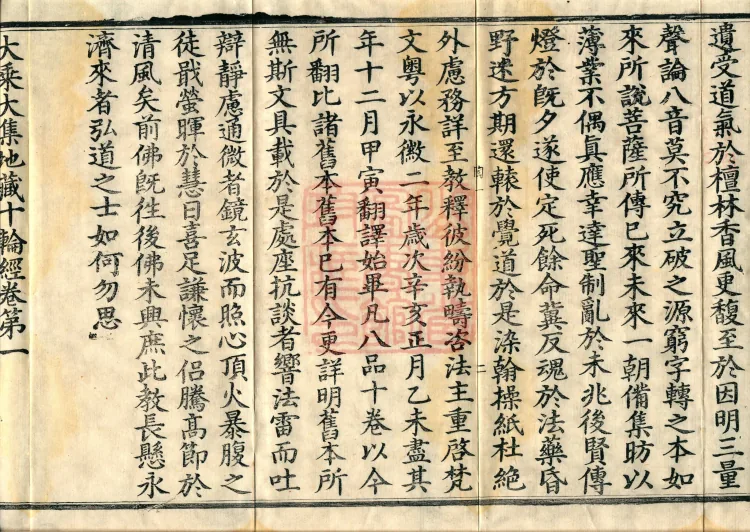 遺受道氣於檀林香風更馥至於因明三量
聲論八音莫不究立破之源窮字轉之本如
來所說菩薩所傳已來未來一朝備集昉以
薄業不偶真應幸達聖制亂於未兆後賢傳
燈於既夕遂使定死餘命冀反魂於法藥昏
野迷方期還轅於覺道於是染翰操紙杜絕
外慮務詳至教釋彼紛執疇咨法主重啓梵
文粵以永徽二年歲次辛亥正月乙未盡其
年十二月甲寅翻譯始畢凡八品十卷以今
所翻比諸舊本舊本已有今更詳明舊本所
無斯文具載於是處座抗談者響法雷而吐
辯靜慮通微者鏡玄波而照心頂火暴腹之
徒戢螢暉於慧日喜足謙懷之侶騰高節於
清風矣前佛既往後佛未興庶此教長懸永
濟來者弘道之士如何勿思
大乘大集地藏十輪經卷第一